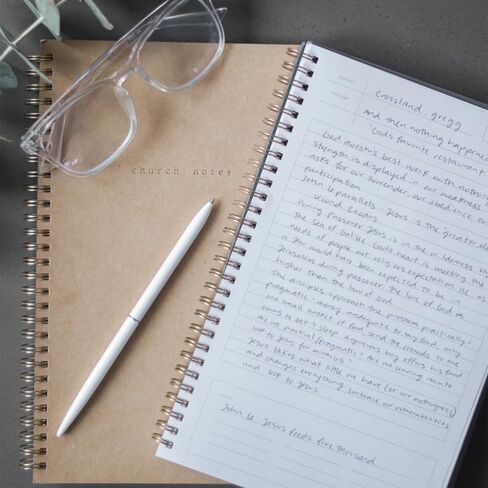 church | notes
Crossland. gregg
And then nothing happened
"Gods favorite restaurant
God does his best work with nothing
strength is displayed in our weakness
asks for our surrender, our obedience, our
participation.
John 6 parallels Jesus is the greater
second Exodus
During Passover Jesus is in the wilderness by
the Sea of Galilee Gods heart is meeting the
needs of people not religious expectation
a Jew would have been expected to be in
Jerusalem during Passover. The love of God is
higher than the law of God
The disciples approach the problem practically,
pragmatic. money inadequate to buy food, only
one small basket of food send the crowds to the
towns to eat
We practical/pragmatic? Are we leaving room
but to Jesus for miracles?
Jesus takes what little we have (or our nothingness)
and changes everything. Embrace our vulnerabilities
and look to Jesus
John 6. Jesus feeds five thousand